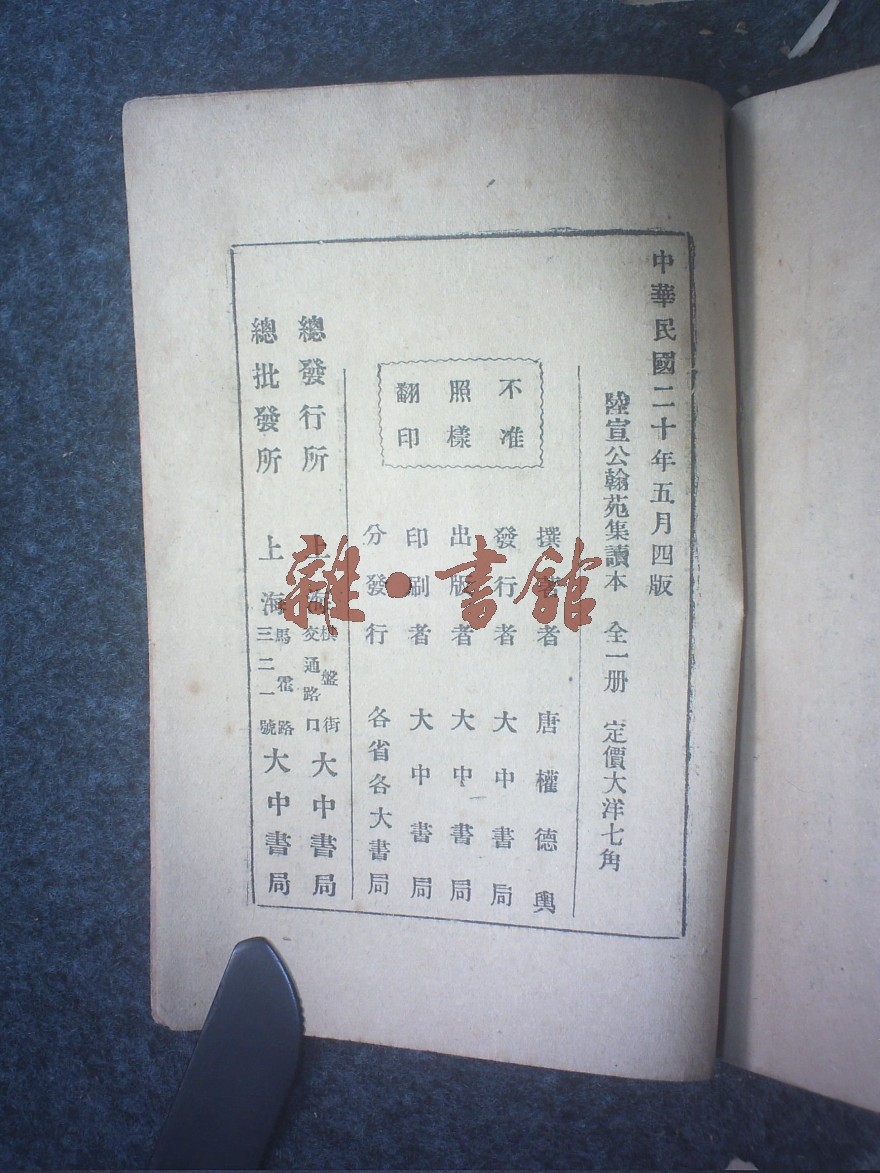 中華民國二十年五月四版
陸宣公翰苑集讀本 全一册 定價大洋七角
不准
照樣
翻印
撰著者 唐權德輿
發行者 大中書局
出版者 大中書局
印刷者 大中書局
分發行 各省各大書局
總發行所 上海棋盤街交通路口 大中書局
總批發所 上海馬霍路三二一號 大中書局
雜·書館